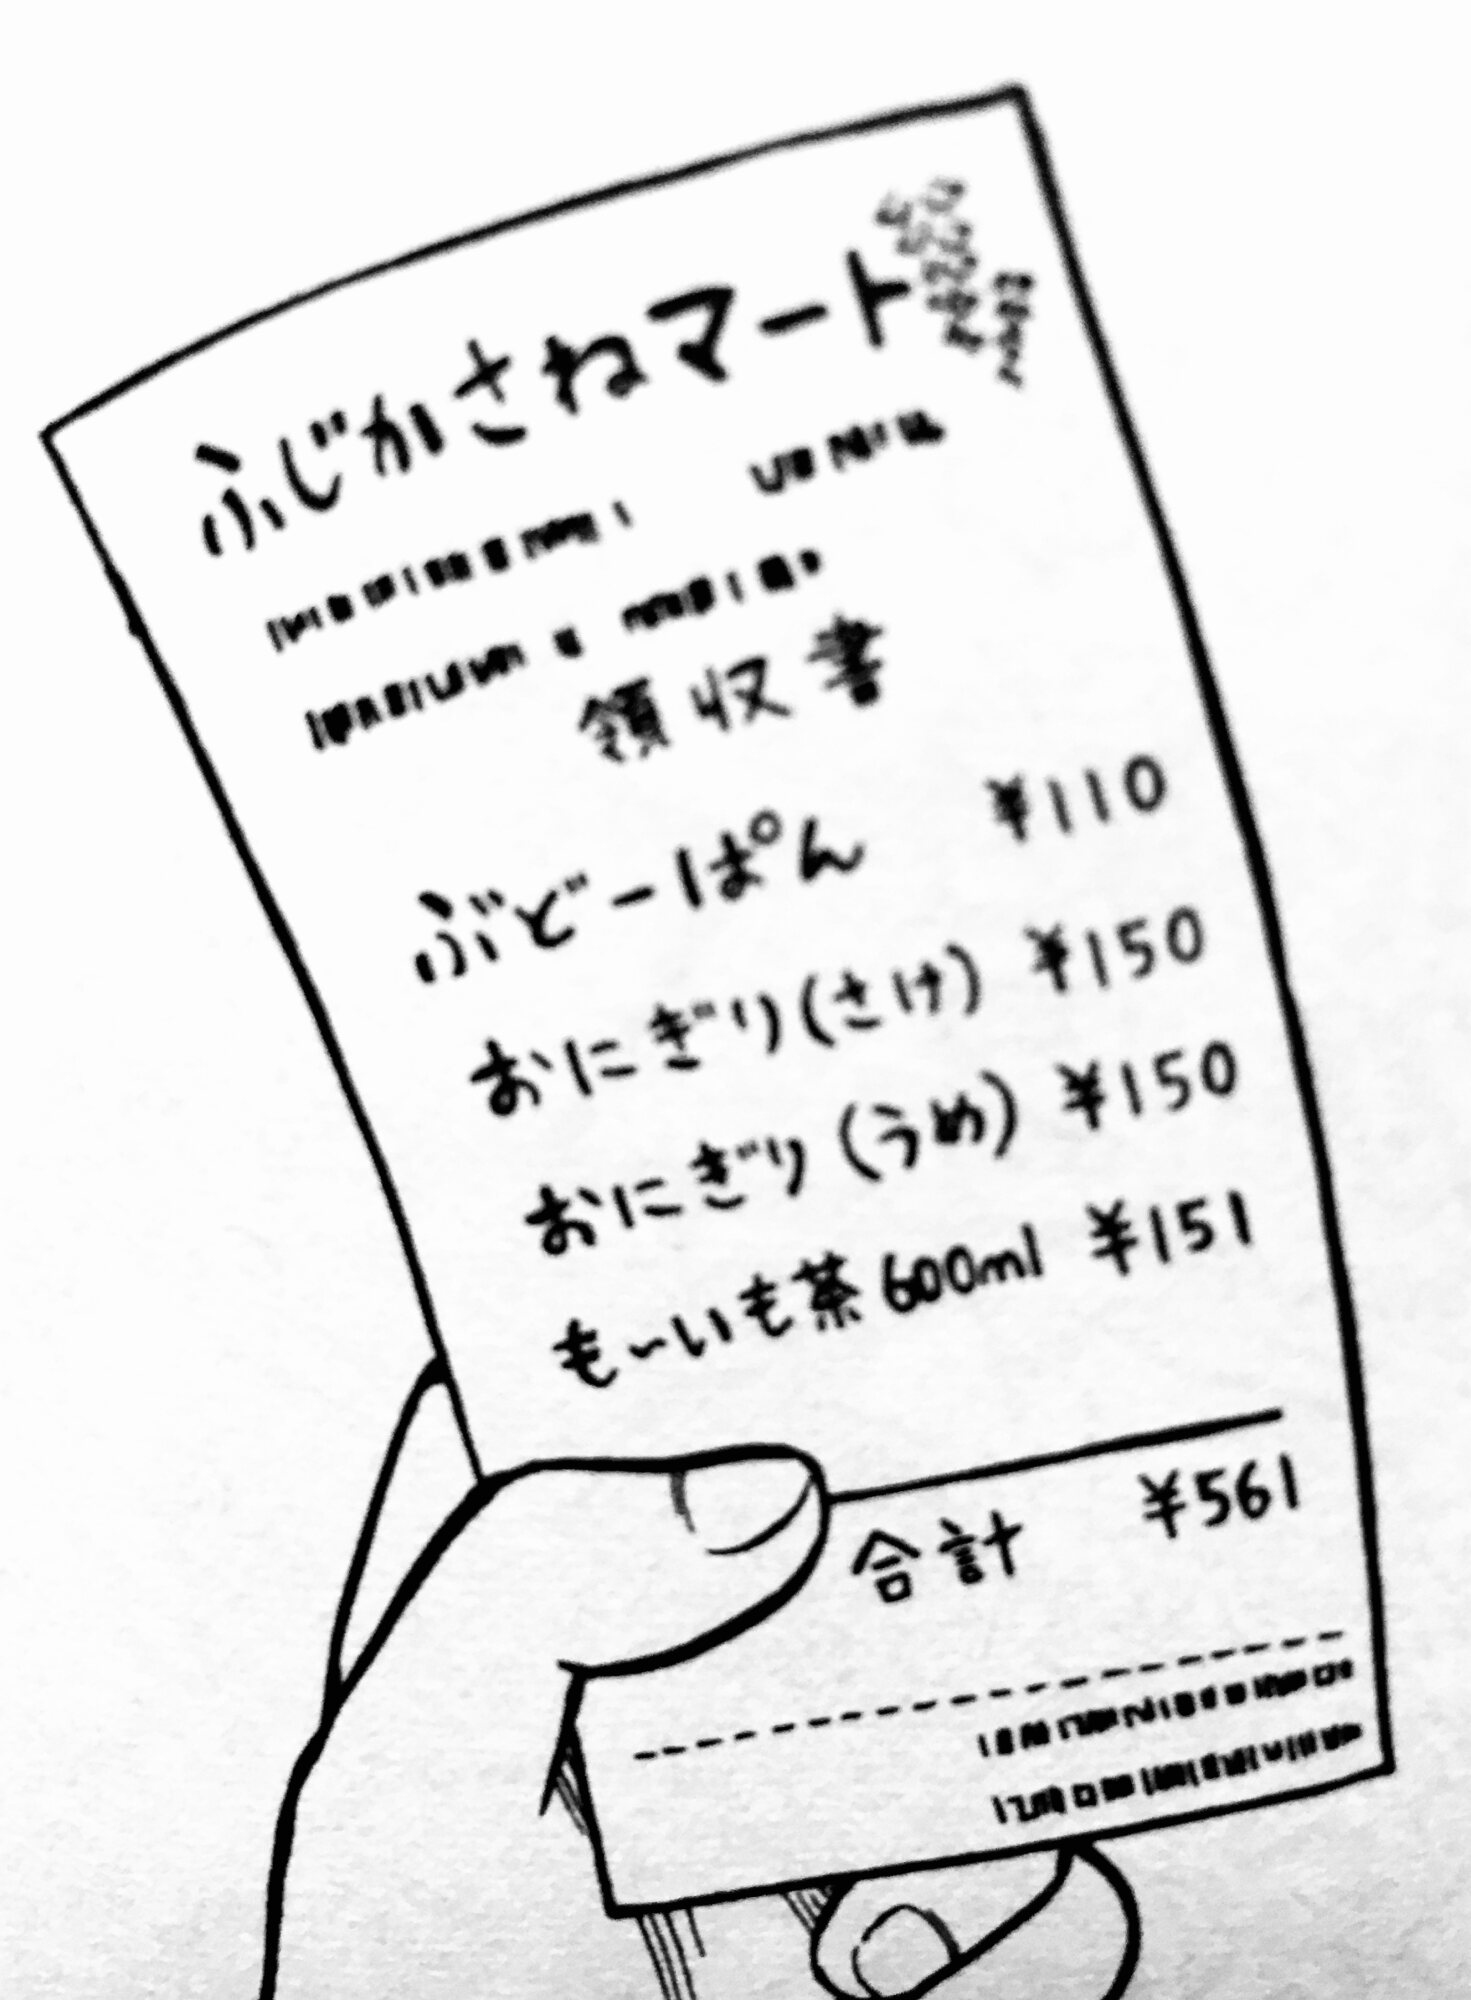 ふじかさねマート
領収書
ぶどーぱん ¥110
おにぎり(さけ) ¥150
おにぎり(うめ) ¥150
も〜いも茶600ml ¥151
合計 ¥561